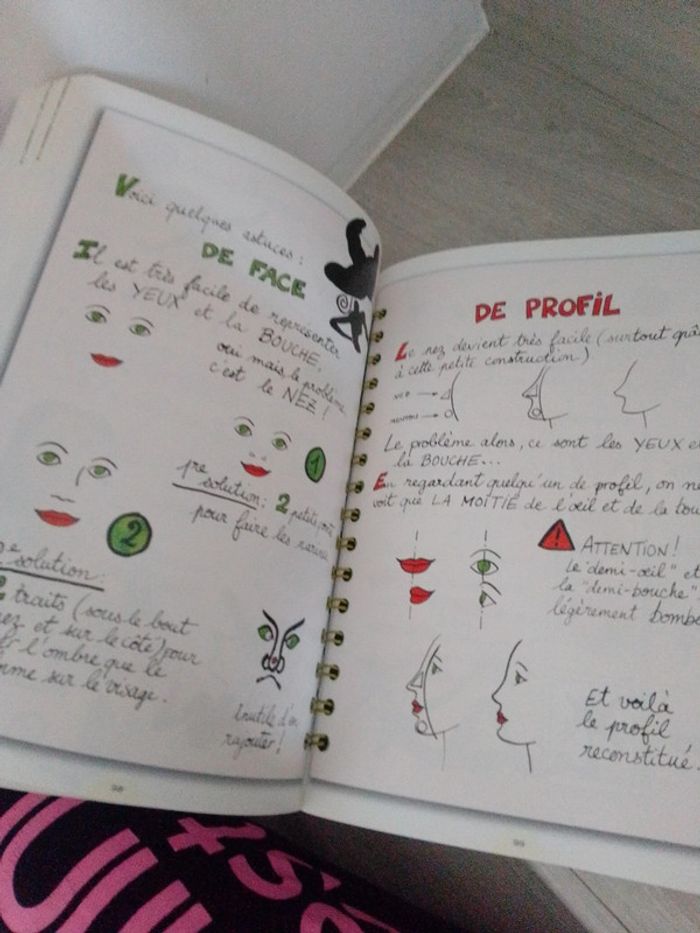 Voici quelques astuces :
DE FACE
Il est très facile de représenter
les YEUX et la BOUCHE,
oui mais, le problème
c'est le NEZ !
1
pre
solution : 2 petits
pour faire les
2
solution :
2 traits (sous le bout
nez et sur le côté) pour
l'ombre que le
sur le visage.
Inutile d'en
rajouter !
98
DE PROFIL
Le nez devient très facile (surtout
à cette petite construction)
NEZ
MENTON
Le problème alors, ce sont les YEUX
la BOUCHE...
En regardant quelqu'un de profil, on
voit que LA MOITIÉ de l'œil et de la
ATTENTION !
Le "demi-œil" et
la "demi-bouche"
légèrement
Et voilà
le profil
reconstitué.
99